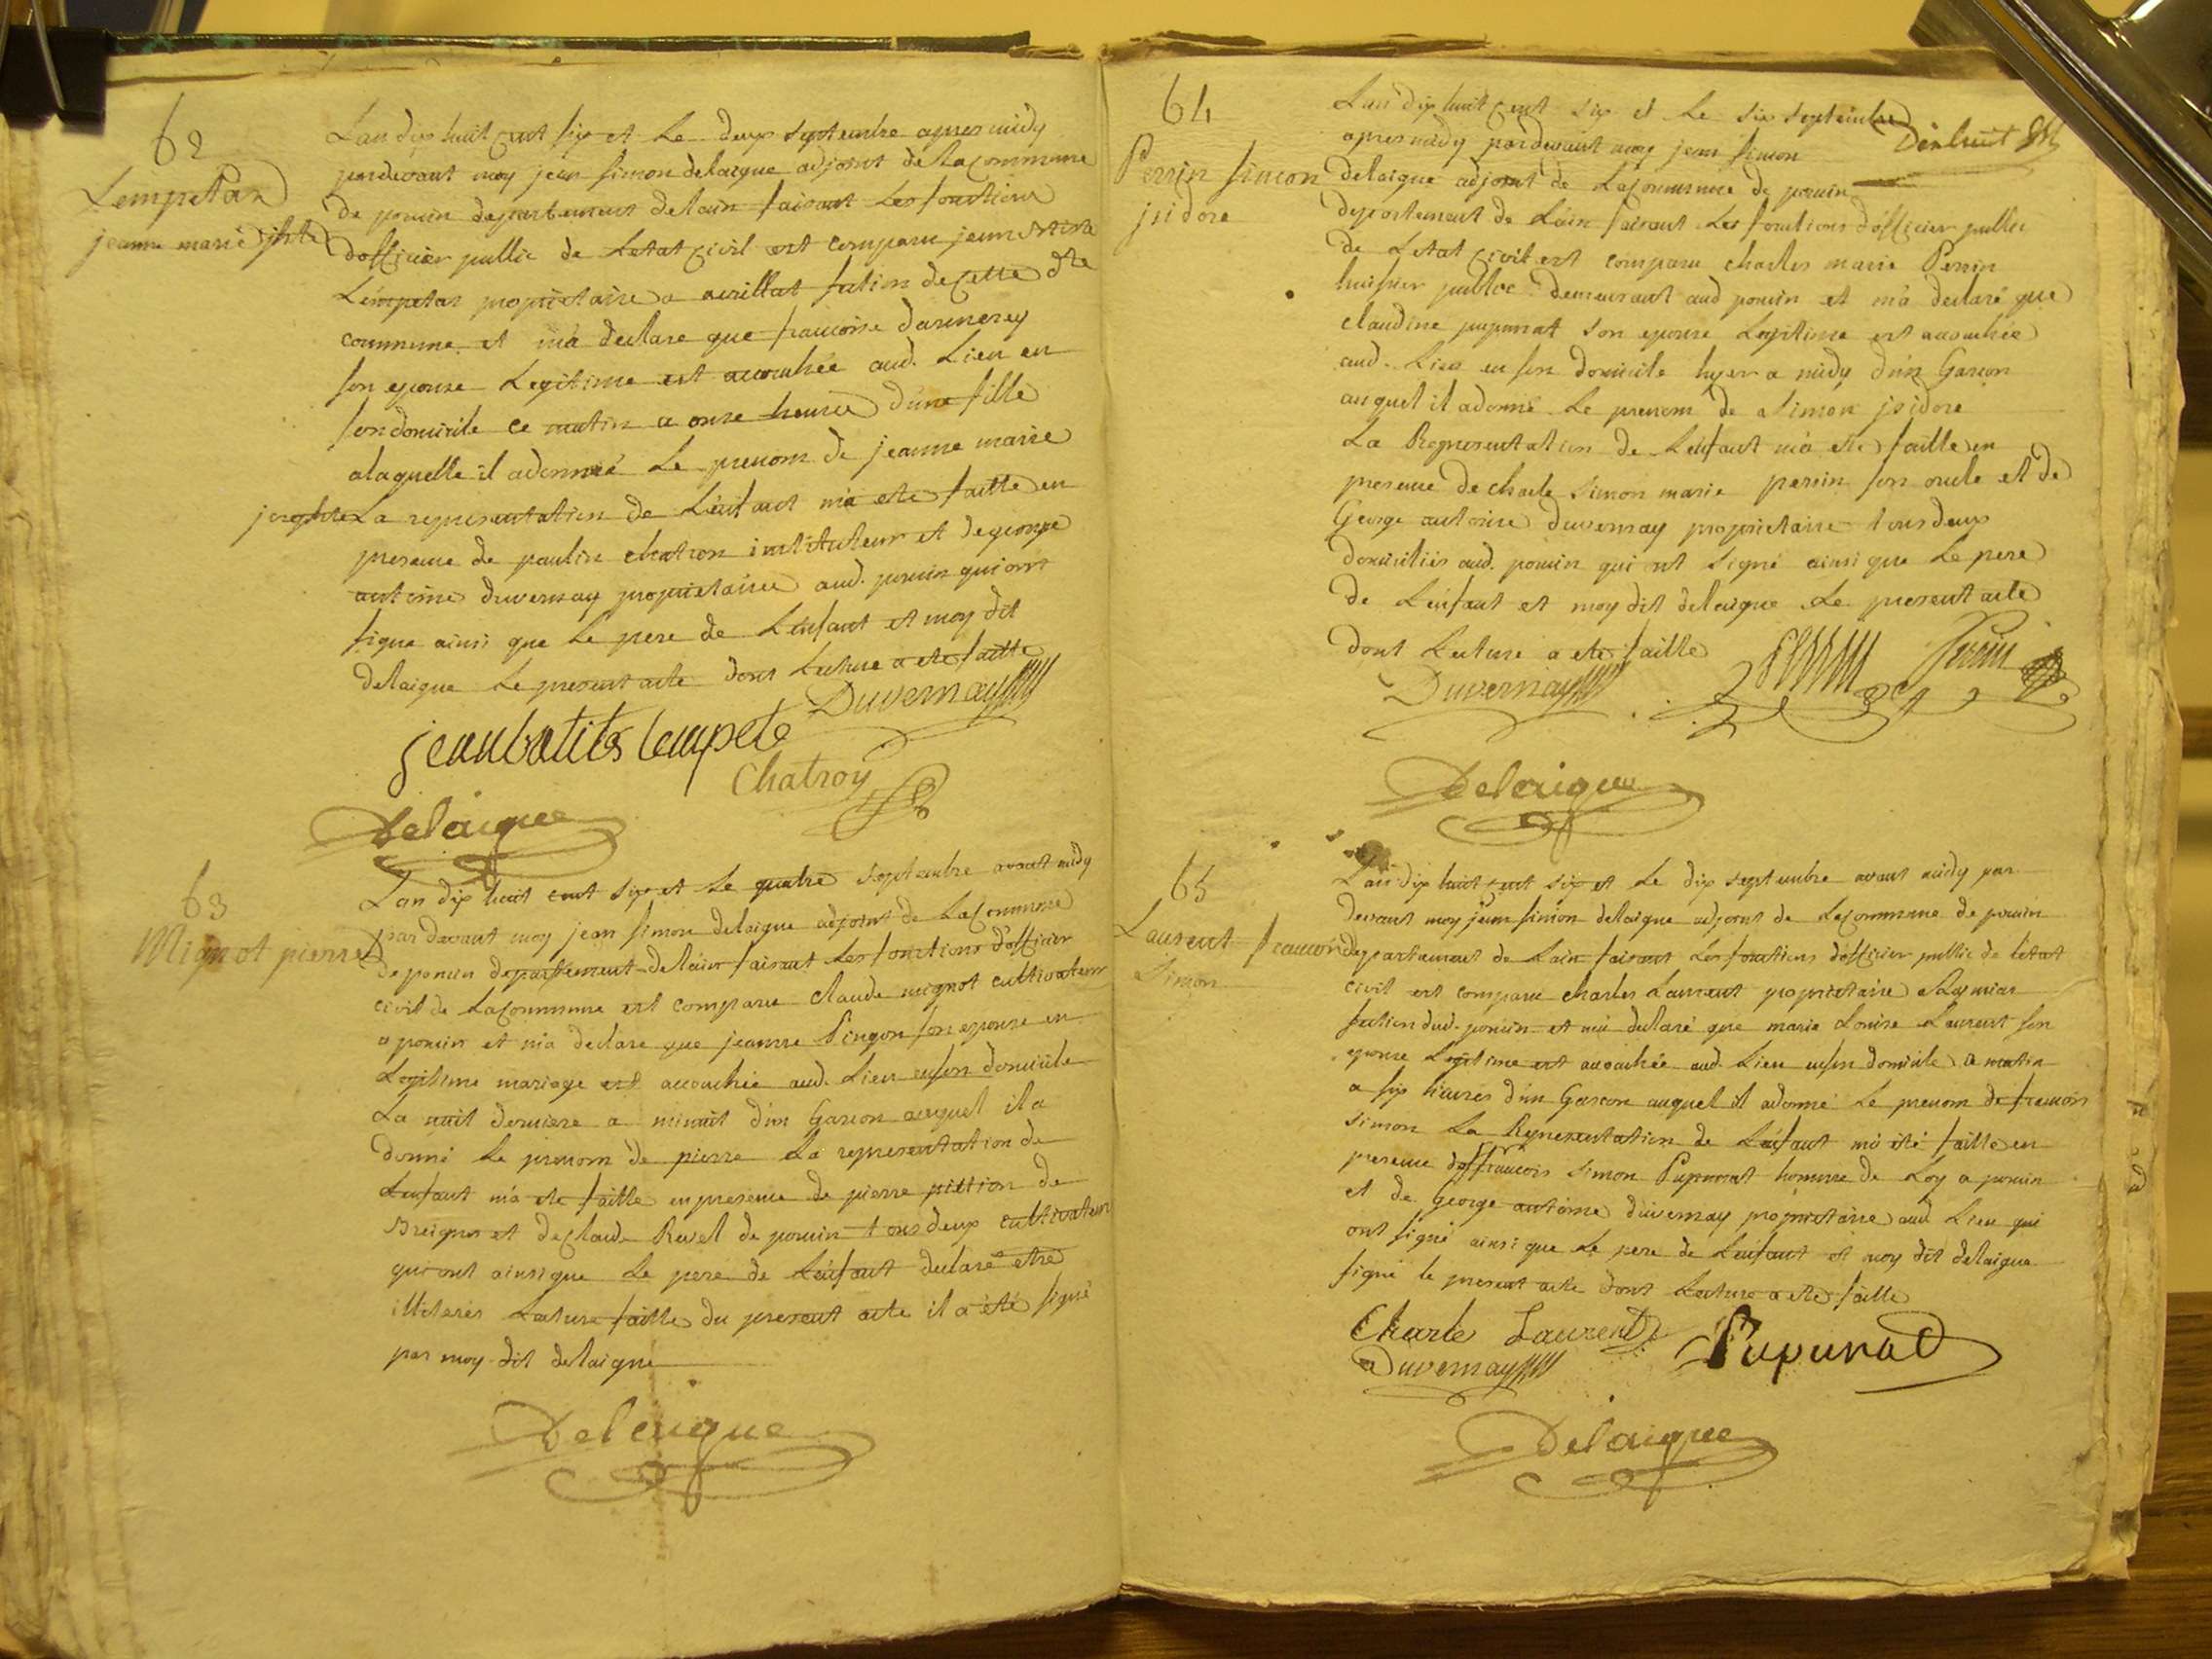 62
Lempetas
jeanne marie jphte
Lan dix huit cent six et le deux septembre apres midy
pardevant moy jean simon delaigue adjoint de la commune
de poncin departement de lain faisant les fonctions
dofficier public de letat civil est comparu jean btiste
Lempetas proprietaire a section de cette dte
commune et m'a declare que francoise darmerey
son epouse legitime est accouchée aud. lieu en
son domicile ce matin a onse heures d'une fille
alaquelle il adonné le prenom de jeanne marie
josephte La representation de l'enfant m'a ete faitte en
presence de paulin chatron instituteur et de george
antoine duvernay proprietaires aud. poncin qui ont
signe ainsi que le pere de l'enfant et moy dit
delaigue le present acte dont lecture a ete faitte
Duvernay
jeanbatits lempete
Chatroy
Delaigue
63
Mignot pierre
Lan dix huit cent six et le quatre septembre avant midy
par devant moy jean simon delaigue adjoint de la commune
de poncin departement de lain faisant les fonctions d'officier
civil de la commune est comparu claude mignot cultivateur
a poncin et m'a declare que jeanne Pingon son epouse en
legitime mariage est accouchée aud. lieu en son domicile
la nuit derniere a minuit d'un Garcon auquel il a
donné le prenom de pierre la representation de
lenfant m'a ete faitte en presence de pierre pittion de
Breignes et de claude Revel de poncin tous deux cultivateurs
qui ont ainsi que le pere de l'enfant declaré etre
illiteres lecture faitte du present acte il a été signé
par moy dit delaigue
Delaigue
64
Perrin simon
jsidore
Lan dix huit cent six et le six septembre
apres midy pardevant moy jean simon
delaigue adjoint de la commune de poncin
departement de l'ain faisant les fonctions d'officier public
de letat civil est comparu charles marie Perrin
huissier public demeurant aud poncin et m'a declaré que
claudine pupunat son epouse legitime est accouchée
aud. lieu en son domicile hyer a midy d'un Garcon
auquel il adonné le prenom de simon jsidore
La Representation de l'enfant m'a ete faitte en
presence de charle simon marie perrin son oncle et de
George antoine duvernay proprietaire tous deux
domiciliés aud. poncin qui ont signé ainsi que le pere
de l'enfant et moy dit delaigue le present acte
dont lecture a ete faitte
Perrin
Duvernay
Delaigue
65
Laurent francois
Simon
Lan dix huit cent six et le dix septembre avant midy par
devant moy jean simon delaigue adjoint de la commune de poncin
departement de lain faisant les fonctions d'officier public de l'etat
civil est comparu charles Laurent proprietaire
section dud. poncin et m'a declaré que marie Louise Laurent son
epouse legitime est accouchée aud. lieu en son domicile ce matin
a six heures d'un Garcon auquel il adonné le prenom de francois
simon La Representation de l'enfant m'a été faitte en
presence de francois simon Pupunat homme de loy a poncin
et de george antoine duvernay proprietaire aud lieu qui
ont signé ainsi que le pere de l'enfant et moy dit delaigue
signé le present acte dont lecture a ete faitte
Charle Laurent
Pupunat
Duvernay
Delaigue